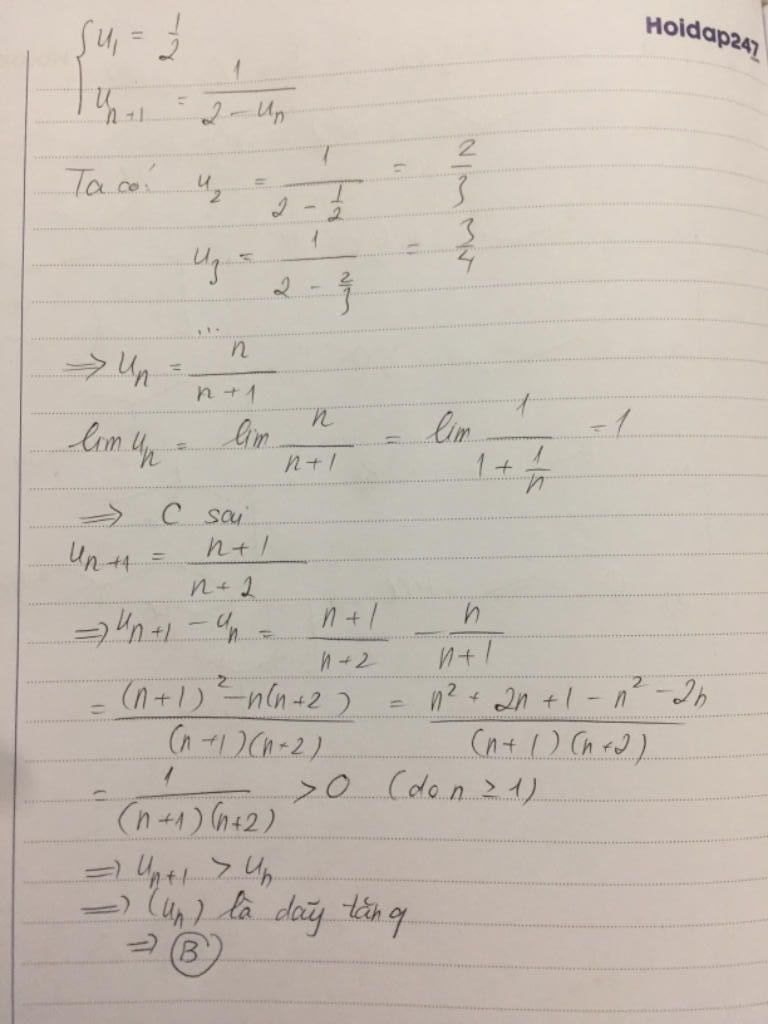 Hoidap247
{ u₁ = 1/2
u_{n+1} = 1/(2 - u_n)
Ta có: u₂ = 1/(2 - 1/2) = 2/3
u₃ = 1/(2 - 2/3) = 3/4
...
⇒ u_n = n/(n+1)
lim u_n = lim n/(n+1) = lim 1/(1 + 1/n) = 1
⇒ C sai
u_{n+1} = (n+1)/(n+2)
⇒ u_{n+1} - u_n = (n+1)/(n+2) - n/(n+1)
= ((n+1)² - n(n+2))/((n+1)(n+2)) = (n² + 2n + 1 - n² - 2n)/((n+1)(n+2))
= 1/((n+1)(n+2)) > 0 (do n ≥ 1)
⇒ u_{n+1} > u_n
⇒ (u_n) là dãy tăng
⇒ B